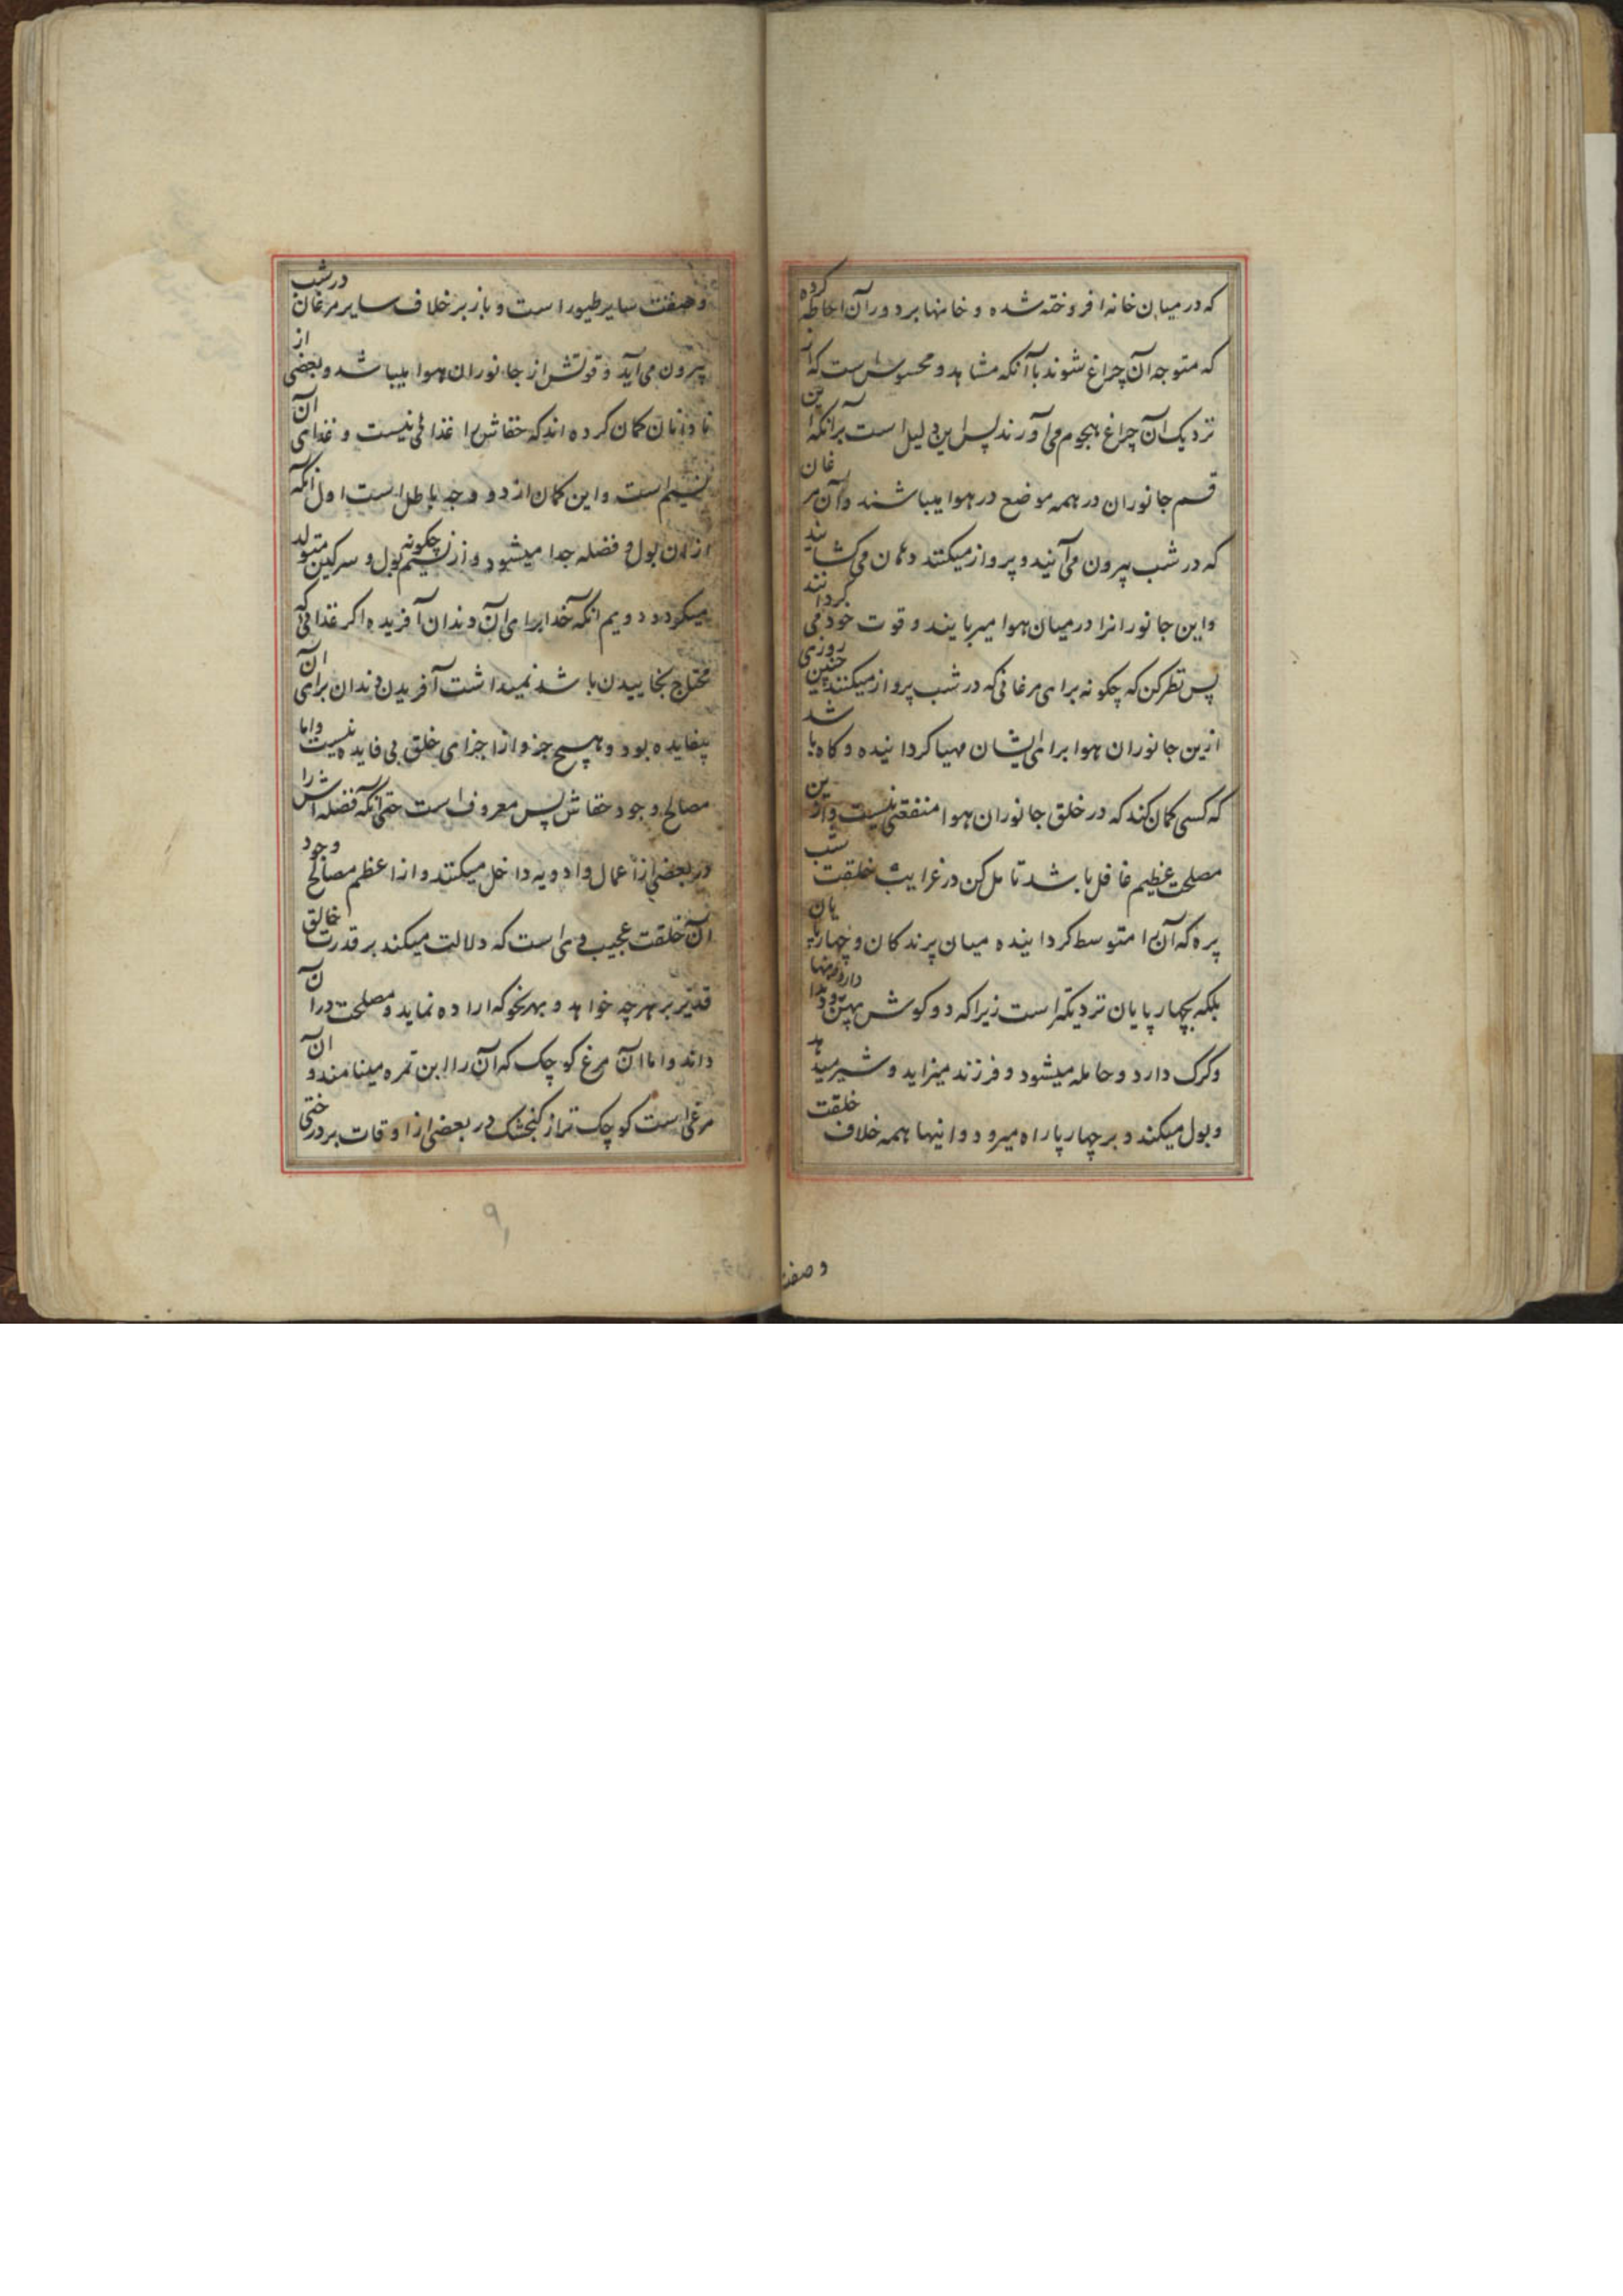 که در میان خانه افروخته شده و خانها بر دور آن احاطه کرده
که متوجه آن چراغ شوند با آنکه مشاهد و محسوس است که از
نزدیک آن چراغ هجوم می آورند پس این دلیل است بر آنکه این
قسم جانوران در همه موضع در هوا میباشند و آن مرغان
که در شب بیرون می آیند و پرواز میکنند دهان می کشایند
و این جانورانرا در میان هوا میربایند و قوت خود می کردانند
پس نظر کن که چکونه برای مرغانی که در شب پرواز میکنند چنین روزی
ازین جانوران هوا برای ایشان مهیا کردانیده و کاه باشد
که کسی کمان کند که در خلق جانوران هوا منفعتی نیست و ازین
مصلحت عظیم غافل باشد تامل کن در غرایب خلقت شب
پره که آن را متوسط کردانیده میان پرندکان و چهارپایان
بلکه بچهارپایان نزدیکتر است زیرا که دو کوش پهن دارد و دندانها
و کرک دارد و حامله میشود و فرزند میزاید و شیر میدهد
و بول میکند و بر چهار پا راه میرود و اینها همه خلاف خلقت
وصفت
وصفت سایر طیور است و باز بر خلاف سایر مرغان در شب
بیرون می آید و قوتش از جانوران هوا میباشد و بعضی از
نادانان کمان کرده اند که خفاش را غذائی نیست و غذای آن
نسیم است و این کمان از دو وجه باطل است اول آنکه
از آن بول و فضله جدا میشود و از نسیم چکونه بول و سرکین متولد
میکردد دویم انکه خدا برای آن دندان آفریده اکر غذائی که
محتاج بخاییدن باشد نمیداشت آفریدن دندان برای آن
بیفایده بود و هیچ جزو از اجزای خلق بی فایده نیست و اما
مصالح وجود خفاش پس معروف است حتی آنکه فضله اش را
در بعضی از اعمال و ادویه داخل میکنند و از اعظم مصالح وجود
آن خلقت عجیب وی است که دلالت میکند بر قدرت خالق
قدیر بر هر چه خواهد و بهر نحو که اراده نماید و مصلحت در آن
داند و اما آن مرغ کوچک که آن را ابن تمره مینامند و آن
مرغی است کوچک تر از کنجشک در بعضی از اوقات بر درختی
۹۱